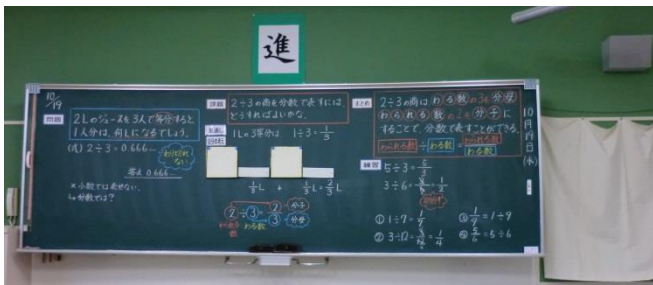 進
10/19
問題
2Lのジュースを3人で等分すると
1人分は、何Lになるでしょう。
(式) 2÷3=0.666…
わりきれない
答え 0.666…
*小数では表せない。
↳分数では?
課題
2÷3の商を分数で表すには、
どうすればよいかな。
見通し
1Lの3等分は 1÷3=1/3
1/3L + 1/3L=2/3L
2÷3=2/3
分子
分母
わられる数
わる数
まとめ
2÷3の商は、わる数の3を分母
わられる数の2を分子に
することで、分数で表すことができる。
わられる数÷わる数=わられる数/わる数
練習
5÷3=5/3
3÷6=3/6=1/2
約分
①1÷7=1/7
②3÷12=3/12=1/4
③1/9=1÷9
④5/6=5÷6
10月19日(水)